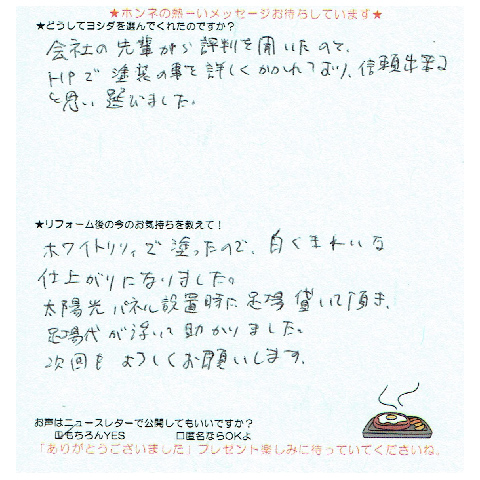 ★ホンネの熱ーいメッセージお待ちしています★
★どうしてヨシダを選んでくれたのですか？
会社の先輩から評判を聞いたので、
HPで塗装の事を詳しくかかれており、信頼出来る
と思い選びました。
★リフォーム後の今のお気持ちを教えて！
ホワイトリリィで塗ったので、白くきれいな
仕上がりになりました。
太陽光パネル設置時に足場貸して頂き、
足場代が浮いて助かりました。
次回もよろしくお願いします。
お声はニュースレターで公開してもいいですか？
☑もちろんYES　　　□匿名ならOKよ
「ありがとうございました」プレゼント楽しみに待っていてくださいね。